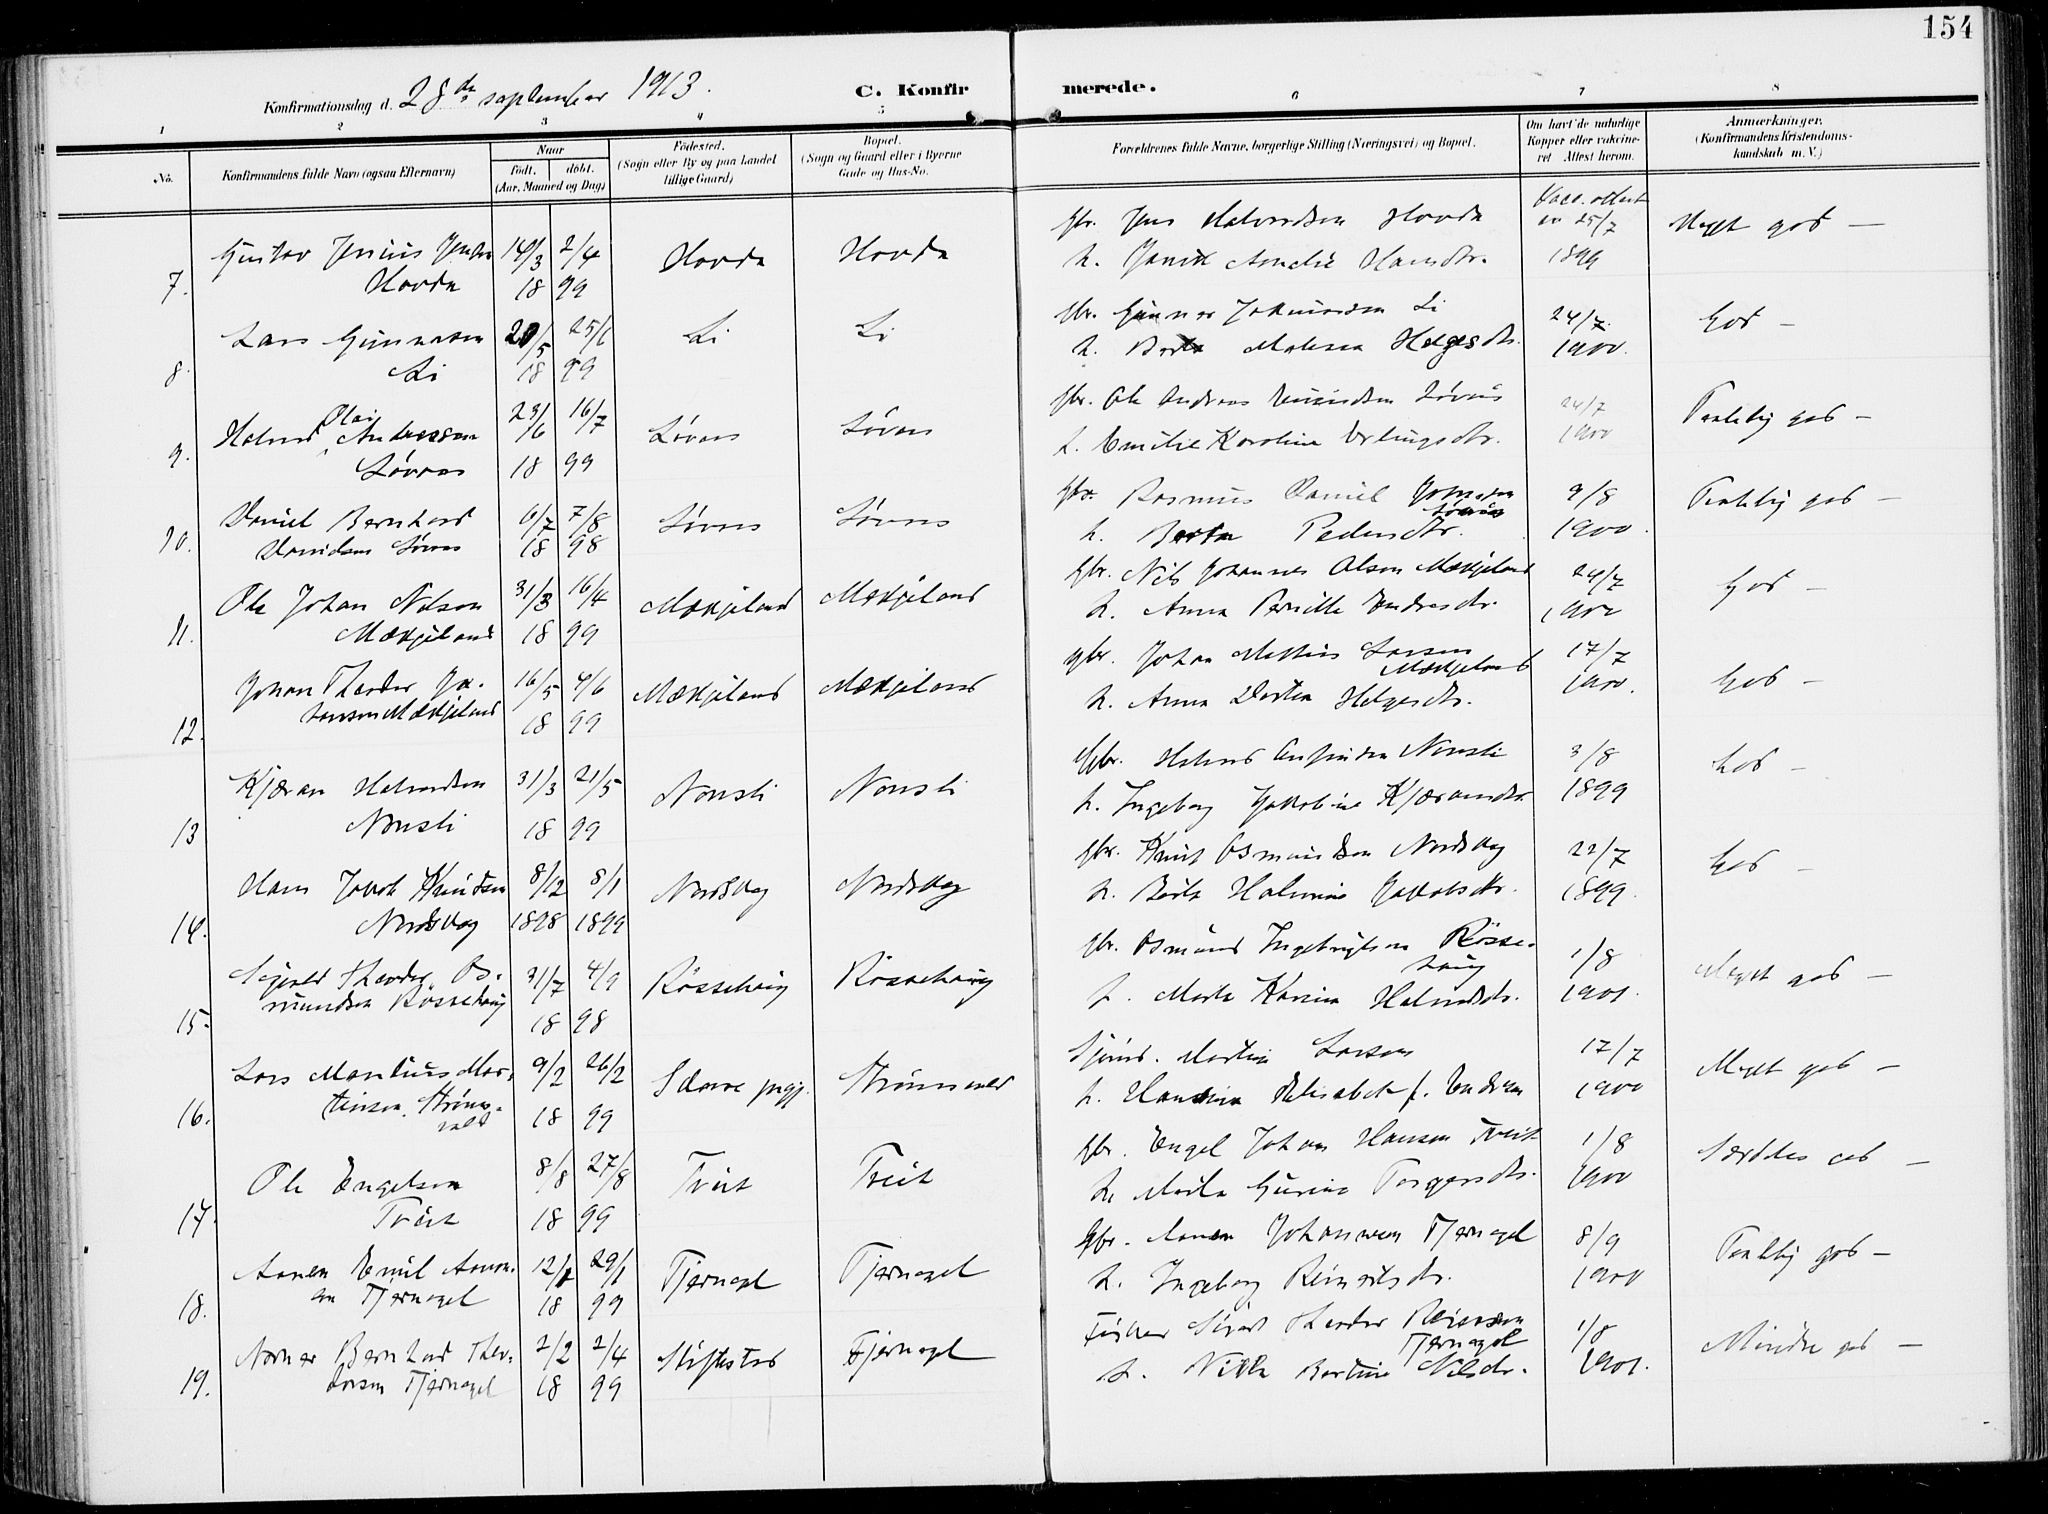 154
Konfirmationsdag d. 28de september 1913.
C. Konfirmerede.
1 2 3 4 5 6 7 8
No.
Konfirmandens fulde Navn (ogsaa Efternavn)
Naar
født. døbt.
(Aar, Maaned og Dag)
Fødested.
(Sogn eller By og paa Landet
tillige Gaard)
Bopæl.
(Sogn og Gaard eller i Byerne
Gade og Hus-No.
Forældrenes fulde Navne, borgerlige Stilling (Næringsvei) og Bopæl.
Om havt de naturlige
Kopper eller vakcine-
ret Attest herom.
Anmærkninger.
(Konfirmandens Kristendoms-
kundskab m. V.)
7. Gustav Jenius Jensen Hovda 14/3 2/4 18 99 Hovda Hovda
Gbr. Jens Halvordsen Hovda
h. Amalie Hansdtr.
Vacc. attest av 25/7 1899
Meget god —
8. Lars Gunnarsen Li 20/5 25/6 18 99 Li Li
Gbr. Gunnar Johannesen Li
h. Berta Malena Helgesdtr.
24/7 1900.
God —
9. Halvord Olai Andreassen Løvaas 23/6 16/7 18 99 Løvaas Løvaas
Gbr. Ole Andreas Løvaas
h. Emilie Karoline Erlingsdtr.
24/7 1900
Temlig god —
10. Daniel Bernhard Danielsen Løvaas 6/7 7/8 18 98 Løvaas Løvaas
Gbr. Rasmus Daniel Løvaas
h. Berta Pedersdtr.
9/8 1900.
Temlig god —
11. Ole Johan Nilsen Mækjeland 31/3 16/4 18 99 Mækjeland Mækjeland
Gbr. Nils Johannes Olsen Mækjeland
h. Anna Pernille Endresdtr.
24/7 1900
God —
12. Johan Theodor Johansen Mækjeland 16/5 4/6 18 99 Mækjeland Mækjeland
Gbr. Johan Mathias Larsen Mækjeland
h. Anna Dorthea Helgesdtr.
17/7 1900.
God —
13 Kjæran Halvordsen Nonsli 31/3 21/5 18 99 Nonsli Nonsli
Gbr. Halvord Nonsli
h. Ingeborg Jakobine Kjæransdtr.
3/8 1899
God —
14. Hans Jakob Knudsen Nordskog 8/12 8/1 1898 1899 Nordskog Nordskog
Gbr. Knut Osmundsen Nordskog
h. Berta Jakobsdtr.
22/7 1899.
God —
15. Theodor Osmundsen Røssehaug 31/7 4/9 18 98 Røssehaug Røssehaug
Gbr. Osmund Ingebrigtsen Røssehaug
h. Marta Karina Halvordsdtr.
1/8 1901.
Meget god —
16. Lars Martinsen Strømsvald 9/2 26/2 18 99 prgj.
Sjømd. Martin Larsen
h. Elisabet f. Endresen
17/7 1900
Meget god —
17. Ole Engelsen Tveit 8/8 27/8 18 99 Tveit Tveit
Gbr. Engel Johan Hansen Tveit
h. Marta Gurine Torgersdtr.
1/8 1900
Særdeles god —
18. Aanen Emil Aanensen Tjernagel 12/1 29/1 18 99 Tjernagel Tjernagel
Gbr. Aanen Johannesen Tjernagel
h. Ingeborg Reinertsdtr.
8/9 1900
Temlig god —
19. Bernhard Theodorsen Tjernagel 2/2 2/4 18 99 Tjernagel
Fisker Sivert Theodor Tjernagel
h. Bertine Nilsdtr.
1/8 1901.
Mindre god —